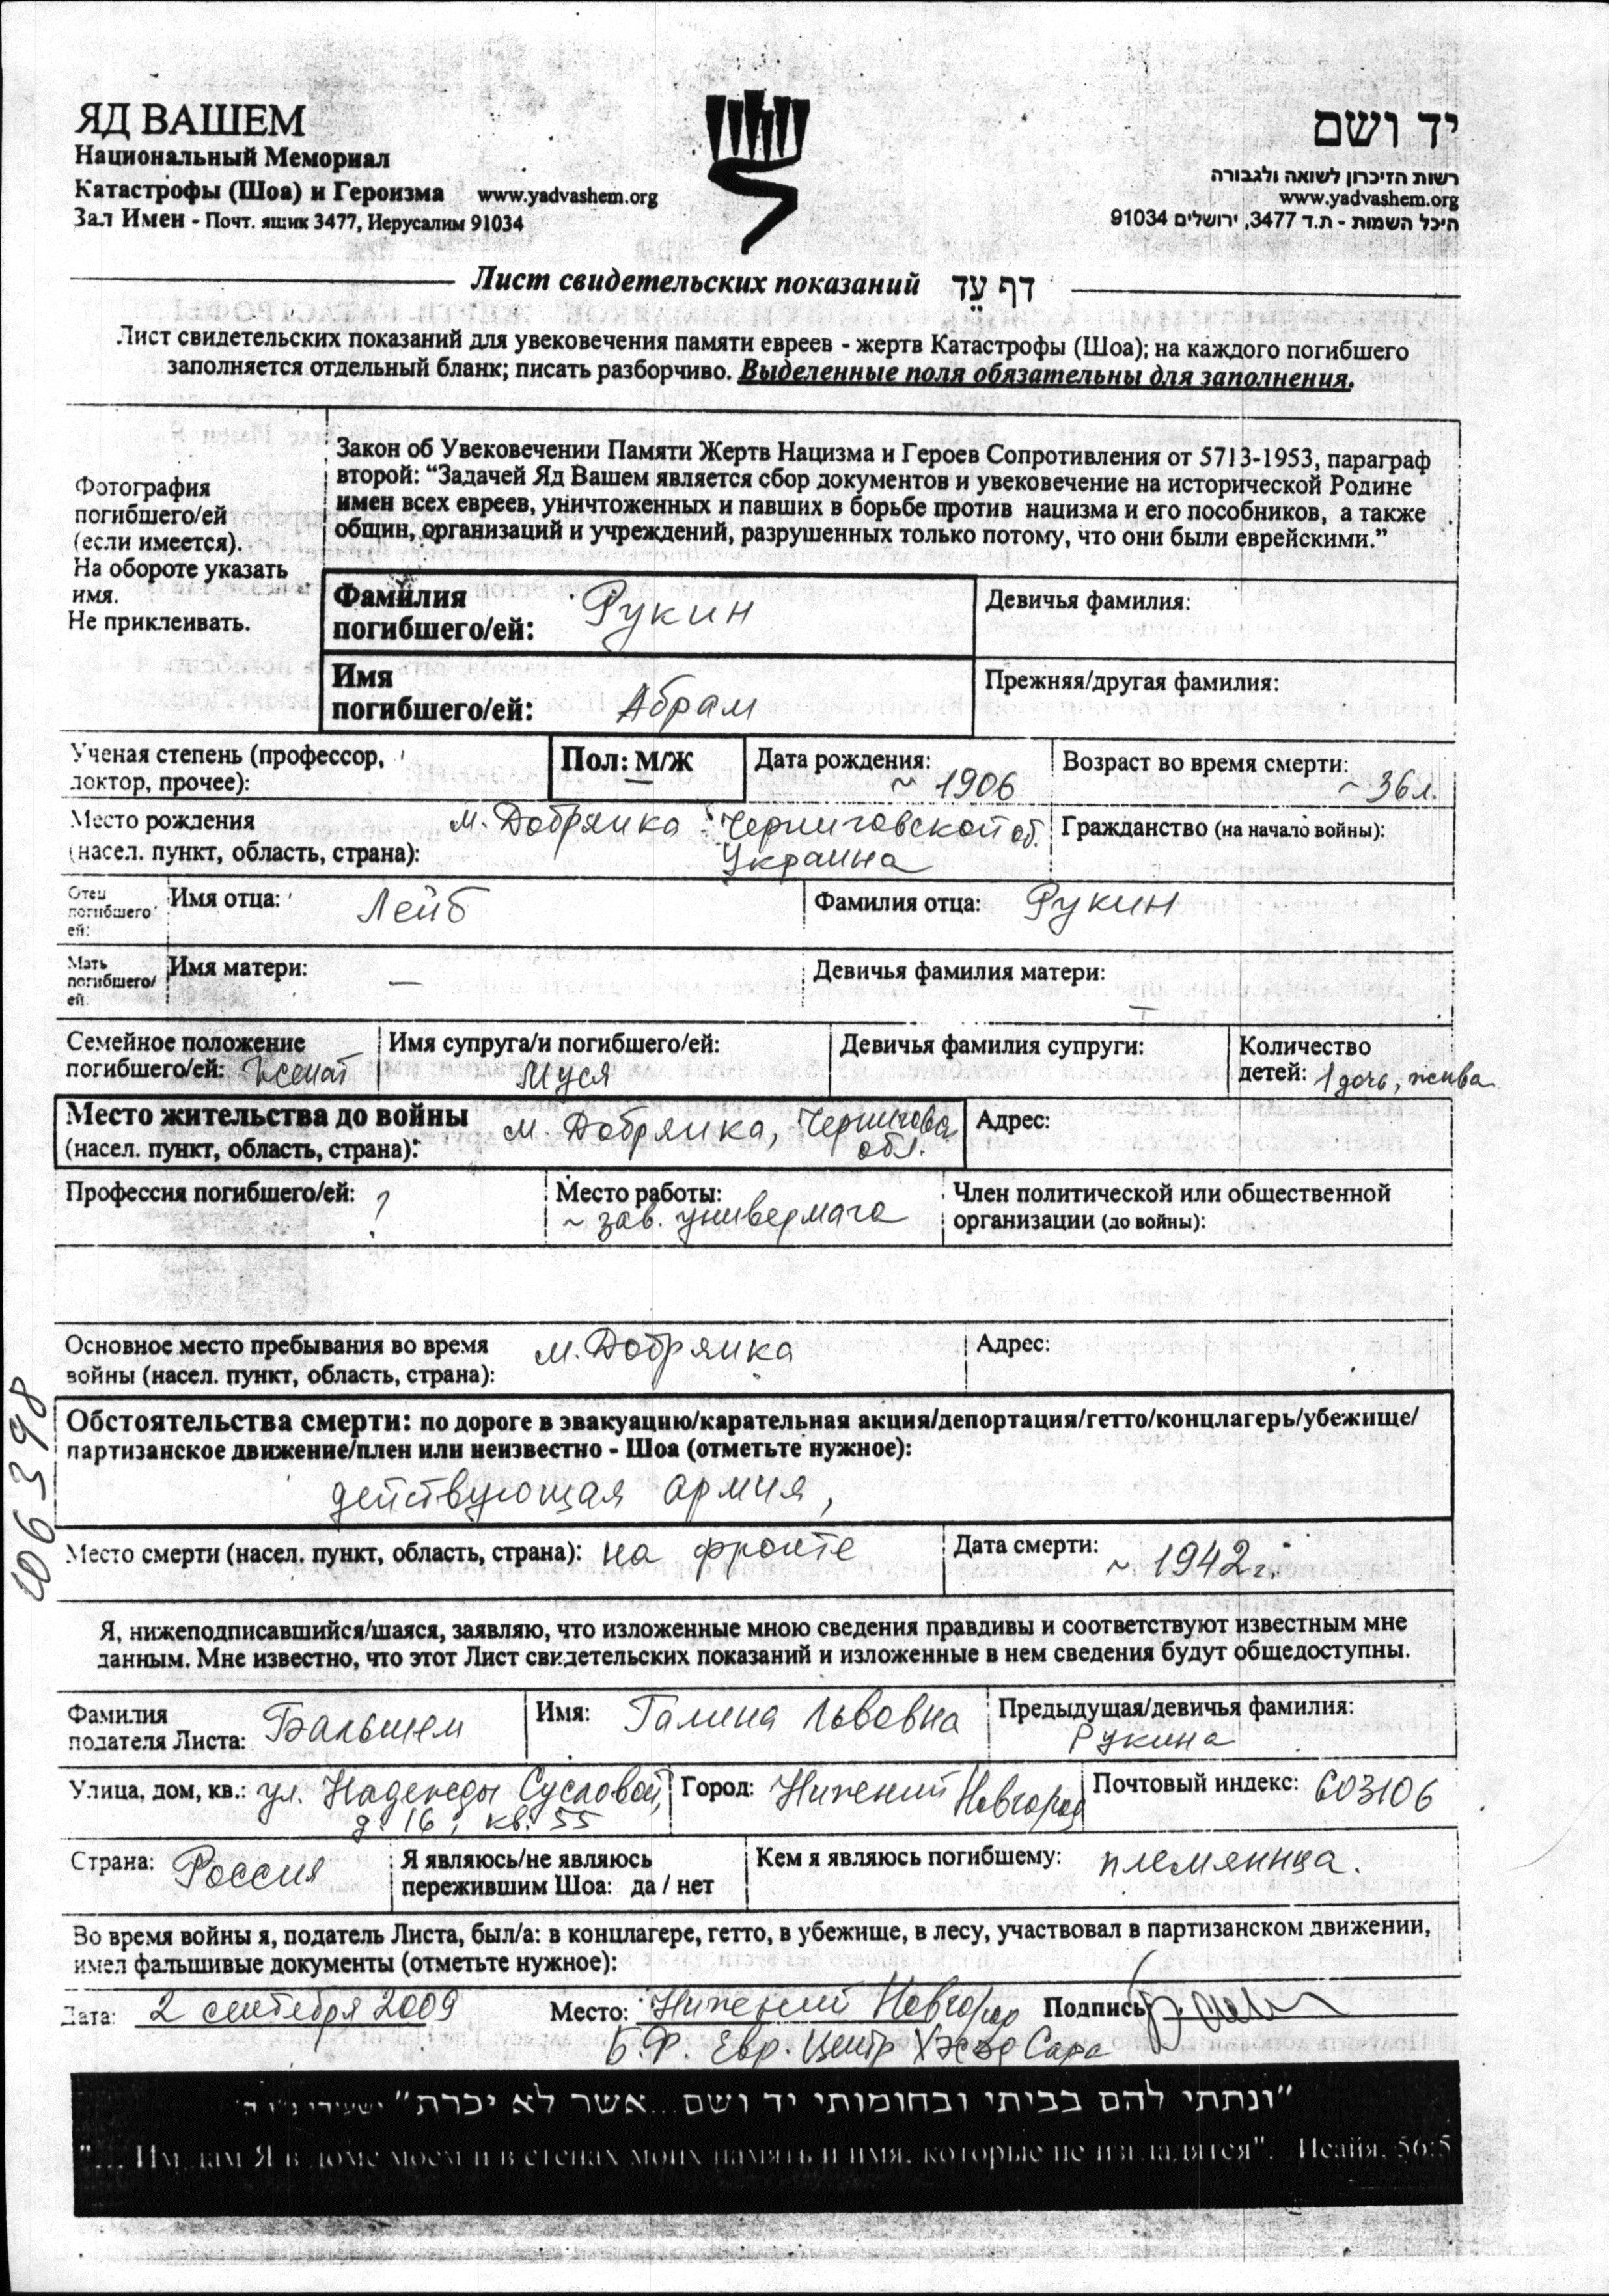 ЯД ВАШЕМ
Национальный Мемориал
Катастрофы (Шоа) и Героизма www.yadvashem.org
Зал Имен - Почт. ящик 3477, Иерусалим 91034
יד ושם
רשות הזיכרון לשואה ולגבורה
www.yadvashem.org
היכל השמות - ת.ד 3477, ירושלים 91034
Лист свидетельских показаний דף עֵד
Лист свидетельских показаний для увековечения памяти евреев - жертв Катастрофы (Шоа); на каждого погибшего
заполняется отдельный бланк; писать разборчиво. Выделенные поля обязательны для заполнения.
Фотография
погибшего/ей
(если имеется).
На обороте указать
имя.
Не приклеивать.
Закон об Увековечении Памяти Жертв Нацизма и Героев Сопротивления от 5713-1953, параграф
второй: “Задачей Яд Вашем является сбор документов и увековечение на исторической Родине
имен всех евреев, уничтоженных и павших в борьбе против нацизма и его пособников, а также
общин, организаций и учреждений, разрушенных только потому, что они были еврейскими.”
Фамилия
погибшего/ей: Рукин
Девичья фамилия:
Имя
погибшего/ей: Абрам
Прежняя/другая фамилия:
Ученая степень (профессор,
доктор, прочее):
Пол: М/Ж
Дата рождения:
~ 1906
Возраст во время смерти:
~ 36 л.
Место рождения м. Добрянка Черниговской об.
(насел. пункт, область, страна): Украина
Гражданство (на начало войны):
Отец
погибшего/
ей:
Имя отца: Лейб
Фамилия отца: Рукин
Мать
погибшего/
ей:
Имя матери: —
Девичья фамилия матери: —
Семейное положение
погибшего/ей: Женат
Имя супруга/и погибшего/ей:
Муся
Девичья фамилия супруги:
Количество
детей: 1 дочь, жива
Место жительства до войны м. Добрянка, Чернигова
(насел. пункт, область, страна): обл.
Адрес:
Профессия погибшего/ей: ?
Место работы:
~ зав. универмага
Член политической или общественной
организации (до войны):
Основное место пребывания во время м. Добрянка
войны (насел. пункт, область, страна):
Адрес:
106398
Обстоятельства смерти: по дороге в эвакуацию/карательная акция/депортация/гетто/концлагерь/убежище/
партизанское движение/плен или неизвестно - Шоа (отметьте нужное):
действующая армия,
Место смерти (насел. пункт, область, страна): на фронте
Дата смерти:
~ 1942 г.
Я, нижеподписавшийся/шаяся, заявляю, что изложенные мною сведения правдивы и соответствуют известным мне
данным. Мне известно, что этот Лист свидетельских показаний и изложенные в нем сведения будут общедоступны.
Фамилия
подателя Листа: Бальшем
Имя: Галина Львовна
Предыдущая/девичья фамилия:
Рукина
Улица, дом, кв.: ул. Надежды Сусловой,
д. 16, кв. 55
Город: Нижений Новгород
Почтовый индекс: 603106
Страна: Россия
Я являюсь/не являюсь
пережившим Шоа: да / нет
Кем я являюсь погибшему: племянница.
Во время войны я, податель Листа, был/а: в концлагере, гетто, в убежище, в лесу, участвовал в партизанском движении,
имел фальшивые документы (отметьте нужное):
Дата: 2 сентября 2009 Место: Нижений Новгород Подпись
Б.Ф. Евр. центр Хэсэд Сара
"ונתתי להם בביתי ובחומותי יד ושם...אשר לא יכרת" ישעיהו נ"ו ה'
"... Им дам Я в доме моем и в стенах моих память и имя, которые не изгладятся". Исайя, 56:5